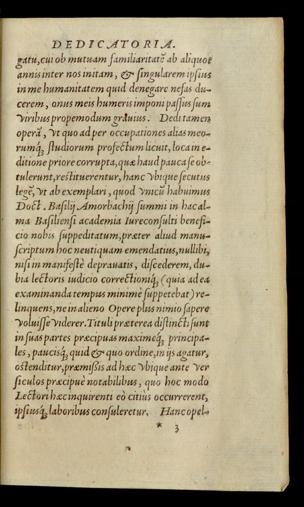 DEDICATORIA.
gatu, cui ob mutuam familiaritatẽ ab aliquot
annis inter nos initam, & singularem ipsius
in me humanitatem quid denegare nefas du-
cerem, onus meis humeris imponi passus sum
viribus propemodum grauius. Dedi tamen
operã, vt quo ad per occupationes alias meo-
rumq́; studiorum profectum licuit, loca in e-
ditione priore corrupta, quæ haud pauca se ob-
tulerunt, restituerentur, hanc vbique secutus
legẽ, vt ab exemplari, quod vnicũ habuimus
Doct. Basilij Amorbachij summi in hac al-
ma Basiliensi academia Iureconsulti benefi-
cio nobis suppeditatum, præter aliud manu-
scriptum hoc neutiquam emendatius, nullibi,
nisi in manifestè deprauatis, discederem, du-
bia lectoris iudicio correctioniq́; (quia ad ea
examinanda tempus minimè suppetebat) re-
linquens, ne in alieno Opere plus nimio sapere
voluisse viderer. Tituli præterea distincti sunt
in suas partes præcipuas maximeq́; principa-
les, paucisq́; quid & quo ordine, in ijs agatur,
ostenditur, præmißis ad hæc vbique ante ver
siculos præcipuè notabilibus, quo hoc modo
Lectori hæc inquirenti eò citiùs occurrerent,
ipsiusq́; laboribus consuleretur. Hanc opel-
* 3